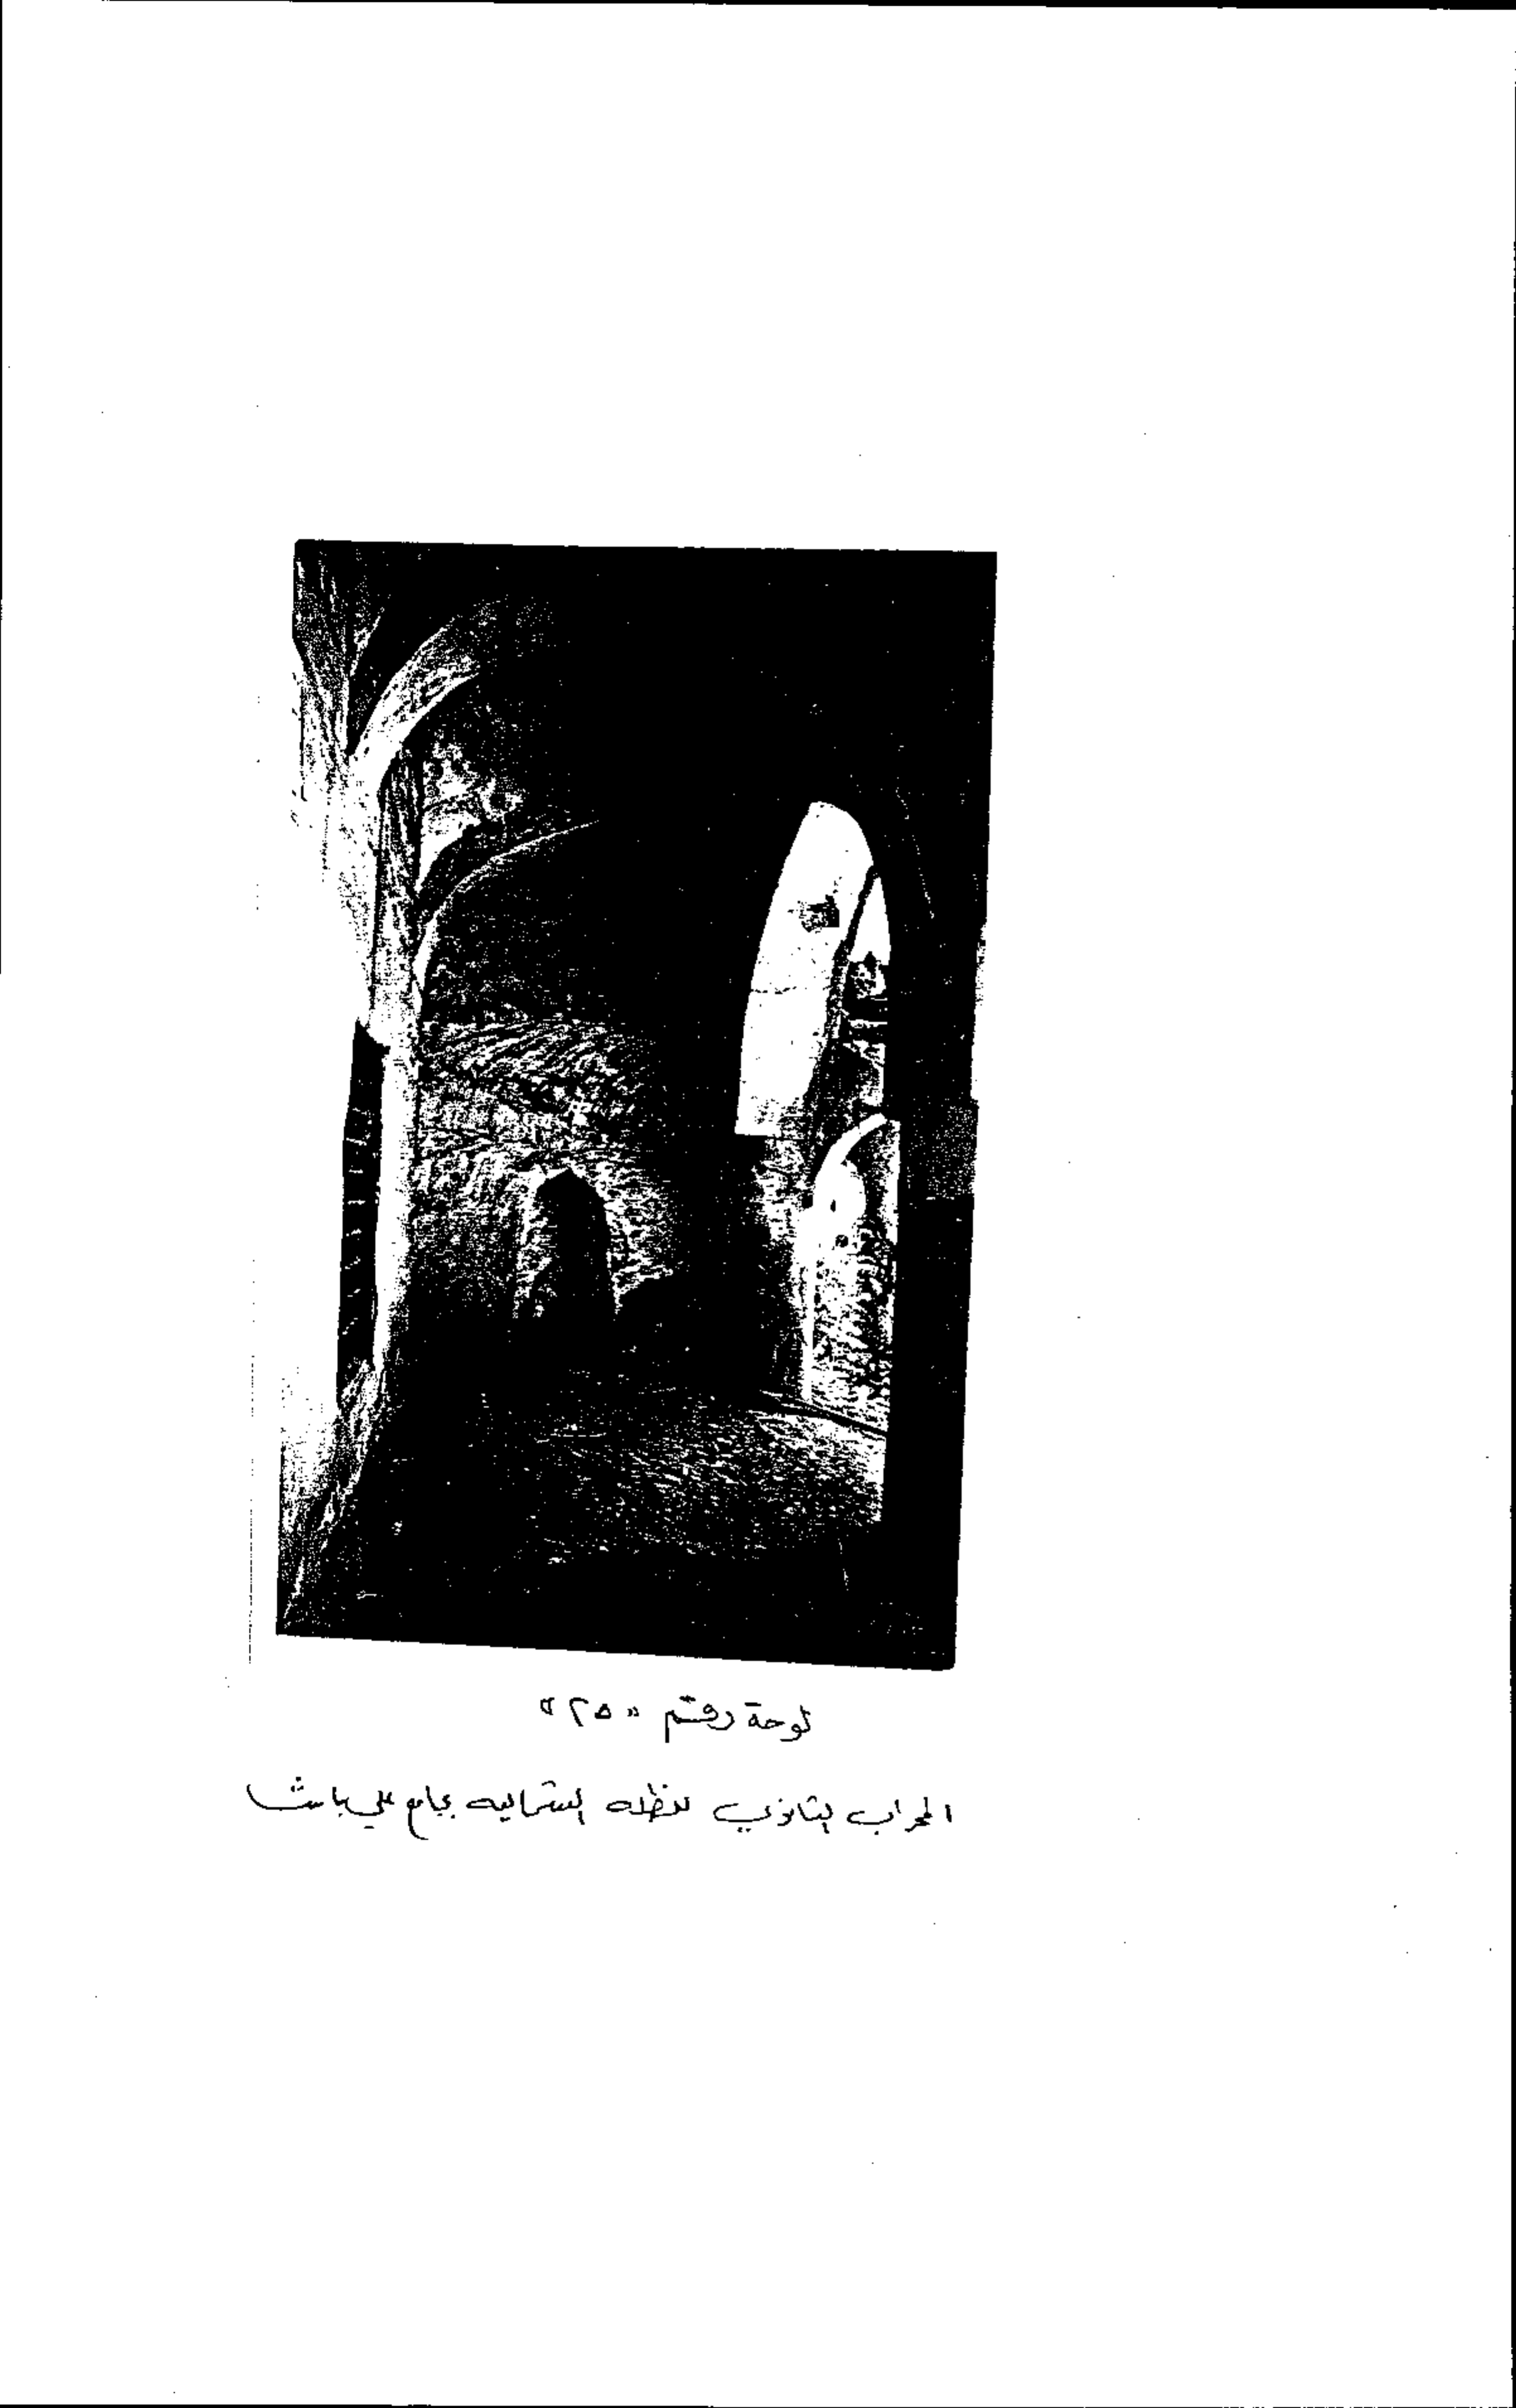 لوحة رقم «٢٥»
المحراب الثانوي للظله الشماليه بجامع علي باشا